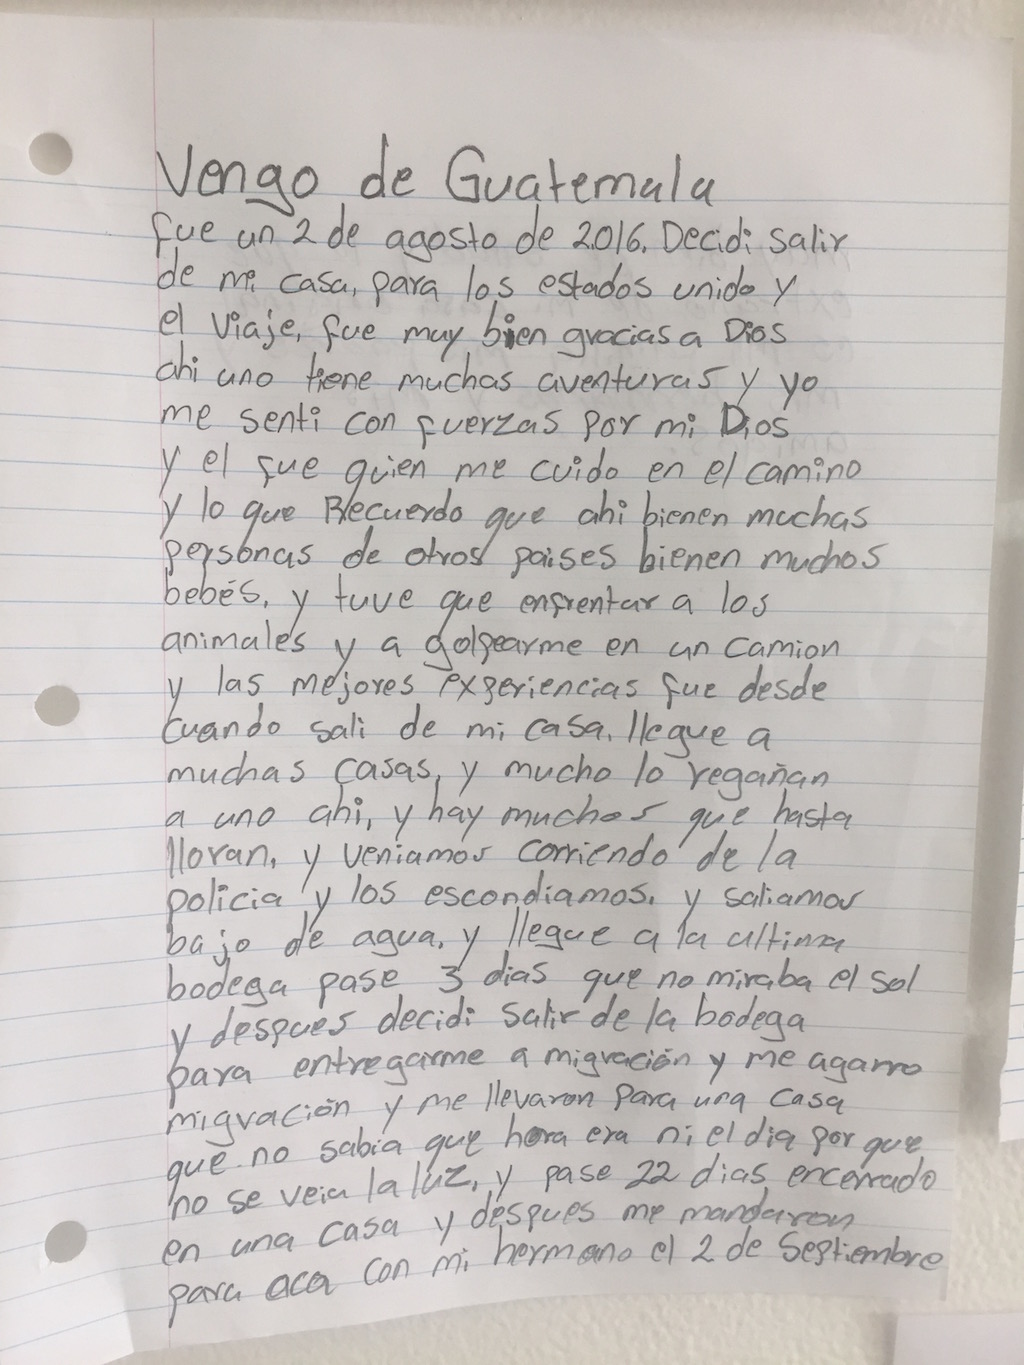 Vengo de Guatemala
fue un 2 de agosto de 2016. Decidi salir
de mi casa, para los estados unido y
el viaje, fue muy bien gracias a Dios
ahi uno tiene muchas aventuras y yo
me senti con fuerzas por mi Dios
y el fue quien me cuido en el camino
y lo que Recuerdo que ahi bienen muchas
personas de otros paises bienen muchos
bebés, y tuve que enfrentar a los
animales y a golpearme en un camion
y las mejores experiencias fue desde
cuando sali de mi casa, llegue a
muchas casas, y mucho lo regañan
a uno ahi, y hay muchos que hasta
lloran, y veniamos corriendo de la
policia y los escondiamos, y saliamos
bajo de agua, y llegue a la ultima
bodega pase 3 dias que no miraba el sol
y despues decidi salir de la bodega
para entregarme a migración y me agarro
migración y me llevaron para una casa
que no sabia que hora era ni el dia por que
no se veia la luz, y pase 22 dias encerrado
en una casa y despues me mandaron
para aca con mi hermano el 2 de Septiembre